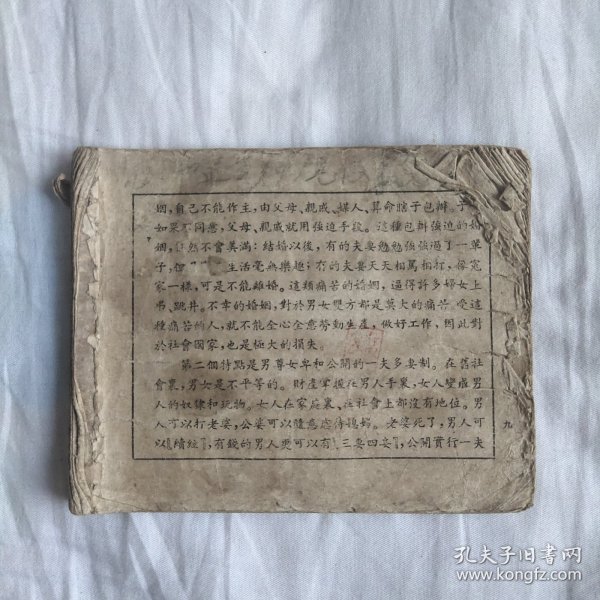 姻，自己不能作主，由父母、親戚、媒人、算命瞎子包辦。子
如果不同意，父母、親戚就用強迫手段。這種包辦強迫的婚
姻，自然不會美滿；結婚以後，有的夫妻勉勉強強過了一輩
子，但 生活毫無樂趣；有的夫妻天天相罵相打，像寃
家一樣，可是不能離婚。這類痛苦的婚姻，逼得許多婦女上
吊、跳井。不幸的婚姻，對於男女雙方都是莫大的痛苦。受這
種痛苦的人，就不能全心全意勞動生產，做好工作，因此對
於社會國家，也是極大的損失。
第二個特點是男尊女卑和公開的一夫多妻制。在舊社
會裏，男女是不平等的。財產掌握在男人手裏，女人變成男
人的奴隸和玩物。女人在家庭裏、在社會上都沒有地位。男
人可以打老婆，公婆可以隨意虐待媳婦。老婆死了，男人可
以續絃，有錢的男人更可以有三妻四妾，公開實行一夫
九
孔夫子旧书网
www.kongfz.com